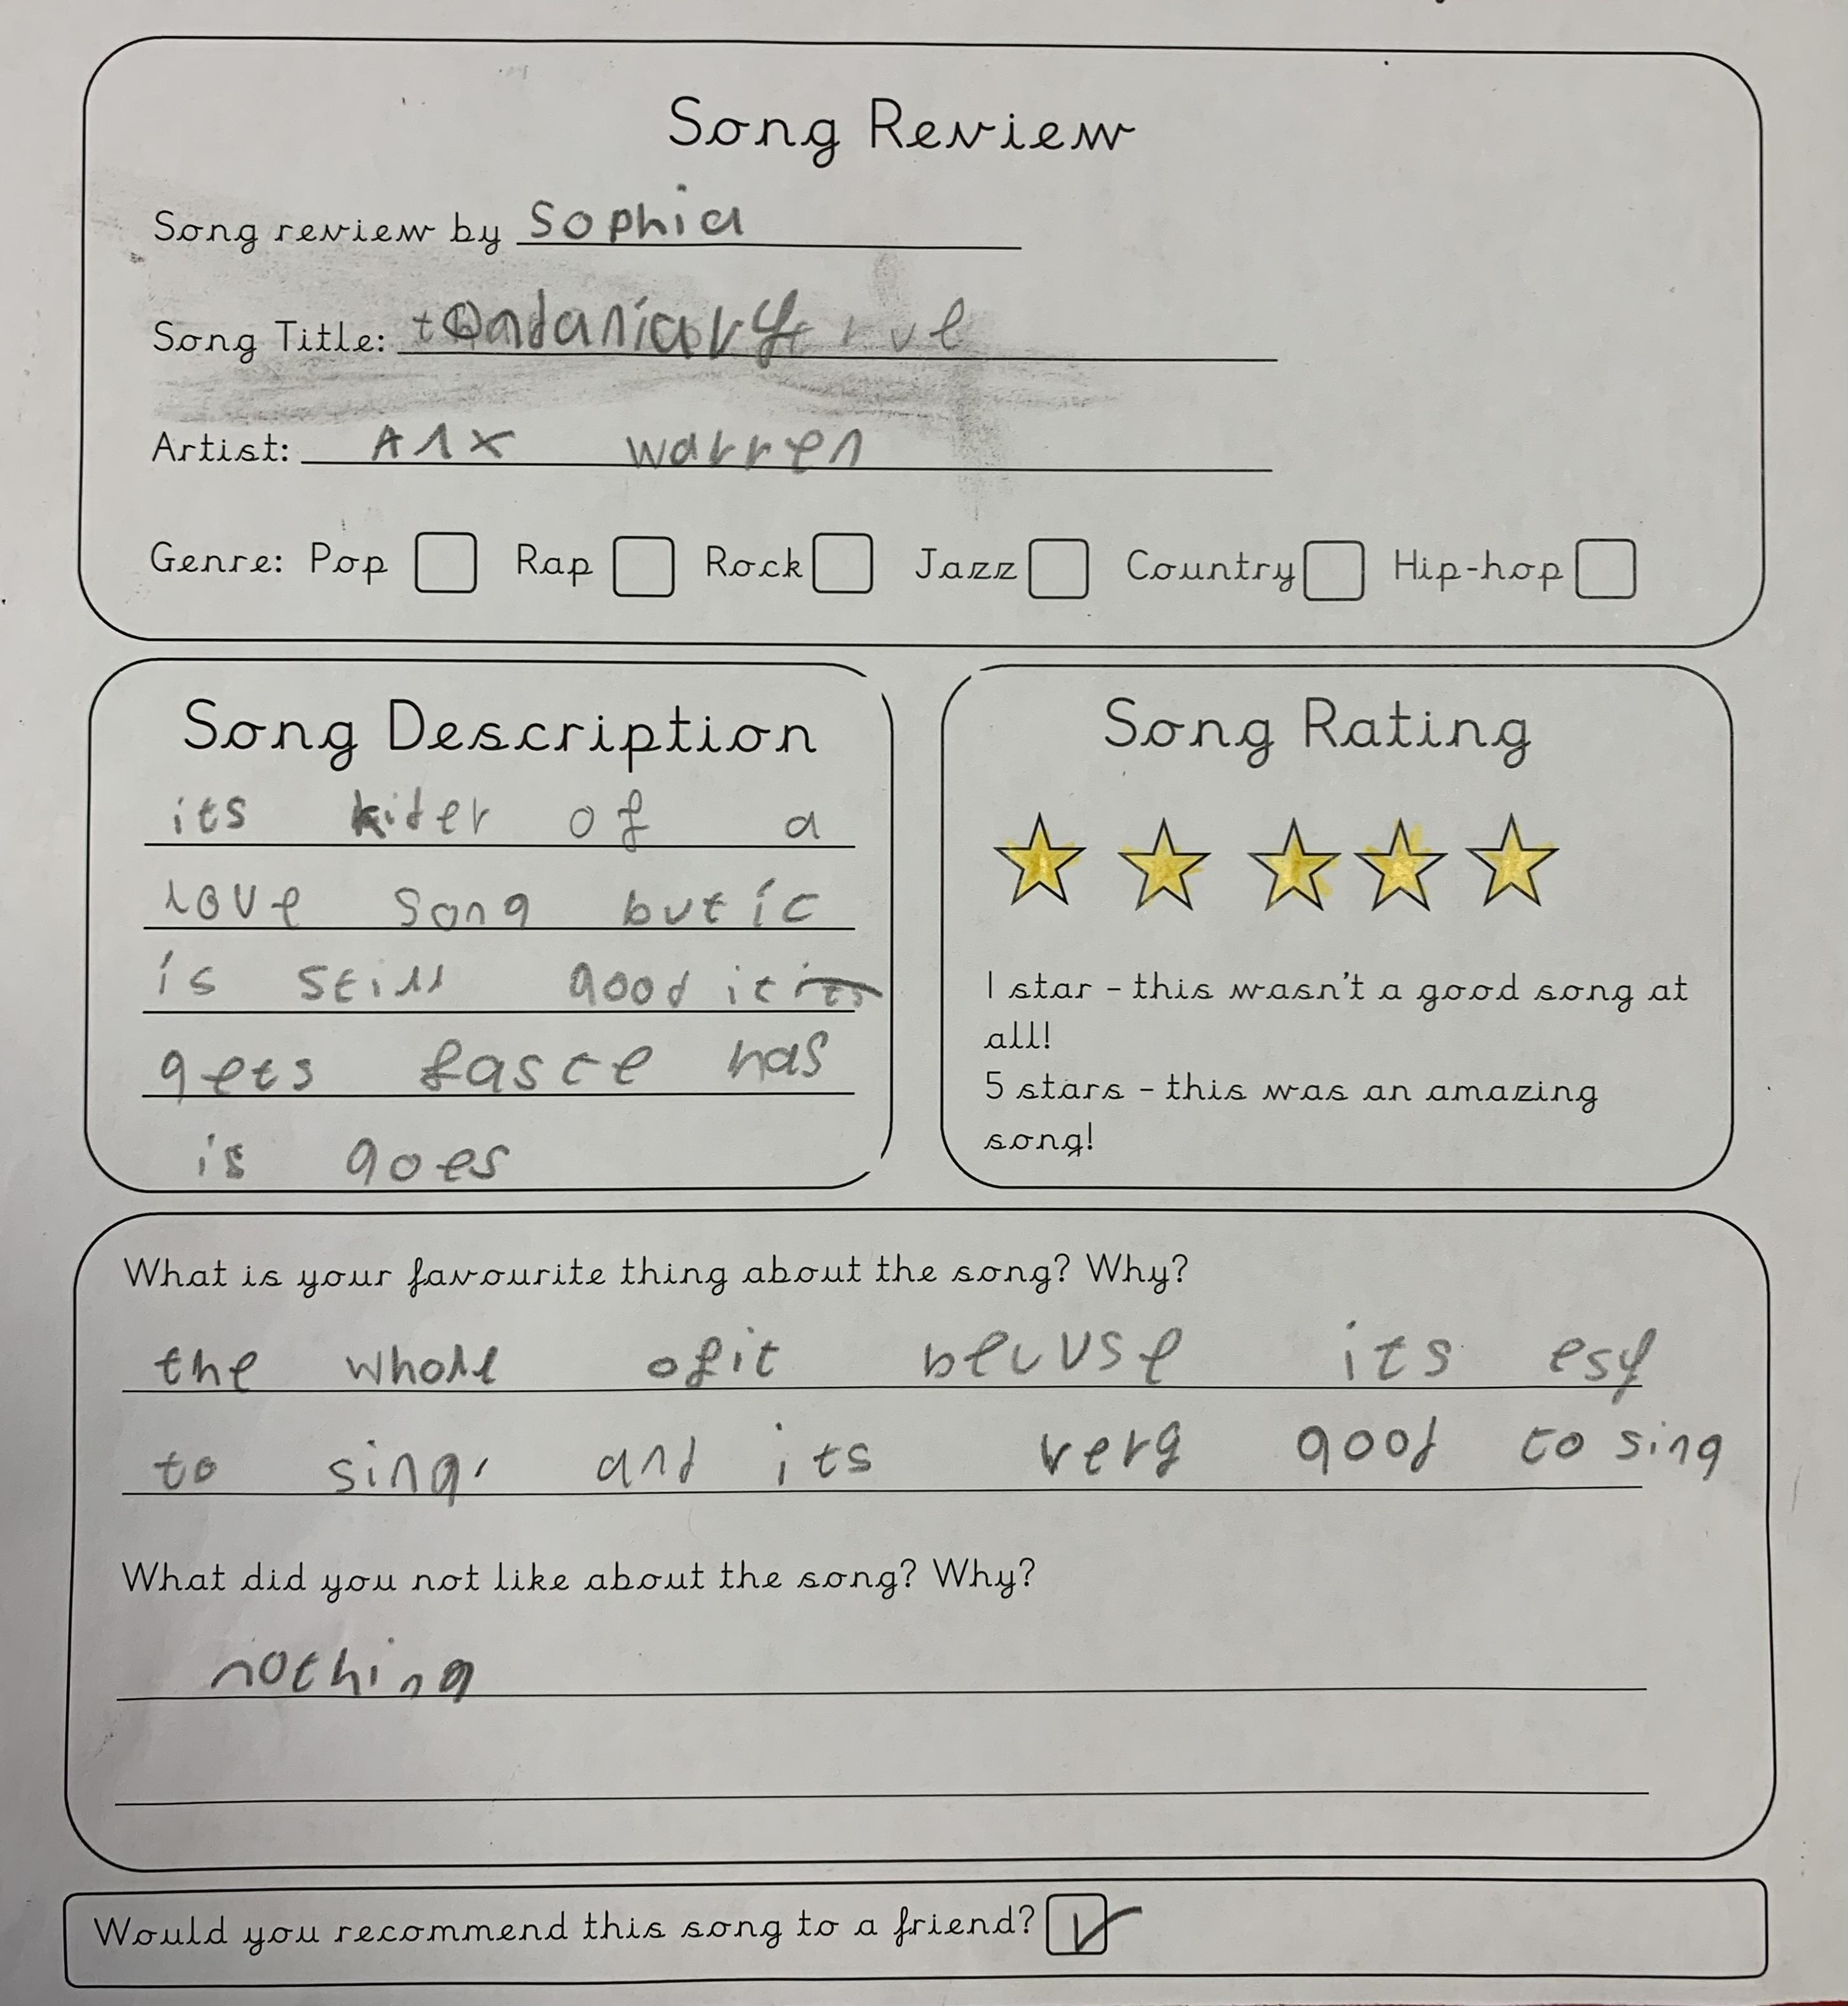 Song Review
Song review by Sophia
Song Title: ondaniary
Artist: Alx warren
Genre: Pop Rap Rock Jazz Country Hip-hop
Song Description
its kider of a
love song but it
is still good it its
gets faste has
is goes
Song Rating
1 star - this wasn't a good song at
all!
5 stars - this was an amazing
song!
What is your favourite thing about the song? Why?
the whole ofit becuse its esy
to sing, and its verg good to sing
What did you not like about the song? Why?
nothing
Would you recommend this song to a friend?